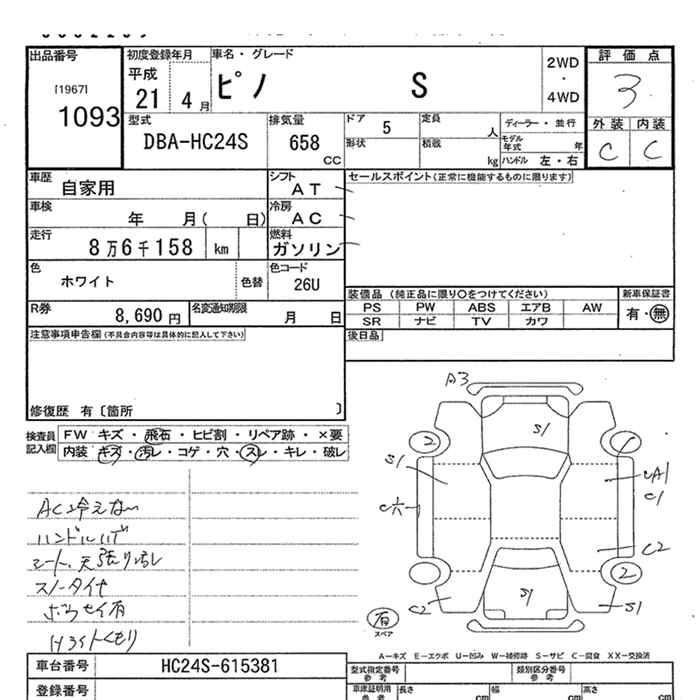 出品番号
[1967]
1093
初度登録年月
平成
21 4月
車名・グレード
ピノ S
2WD
・
4WD
評価点
3
外装 内装
C C
型式
DBA-HC24S
排気量
658
CC
ドア 5
定員 人
形状
積載 kg
ディーラー・並行
モデル年式 年
ハンドル 左・右
車歴 自家用
シフト AT
車検 年 月( 日)
冷房 AC
走行 8万6千158 km
燃料 ガソリン
色 ホワイト 色替
色コード 26U
R券 8,690円
名変通知期限 月 日
セールスポイント(正常に機能するものに限ります)
装備品 (純正品に限り○をつけてください)
新車保証書
PS PW ABS エアB AW
SR ナビ TV カワ
有・無
後日品
注意事項申告欄(不具合内容等は具体的に記入して下さい)
修復歴 有〔箇所 〕
検査員記入欄
FW キズ・飛石・ヒビ割・リペア跡・×要
内装 キズ・汚レ・コゲ・穴・スレ・キレ・破レ
AC冷えない
ハンドルハゲ
シート、天張り汚レ
スノータイヤ
ボウセイ有
Hライトくもり
A3
S/
2
S/
CA1
C1
C2
2
S/
C2
S/
有
スペア
A―キズ E―エクボ U―凹み W―補修跡 S―サビ C―腐食 XX―交換済
車台番号 HC24S-615381
登録番号
型式指定番号
参考
類別区分番号
参考
車庫証明用
参考
長さ cm
幅 cm
高さ cm